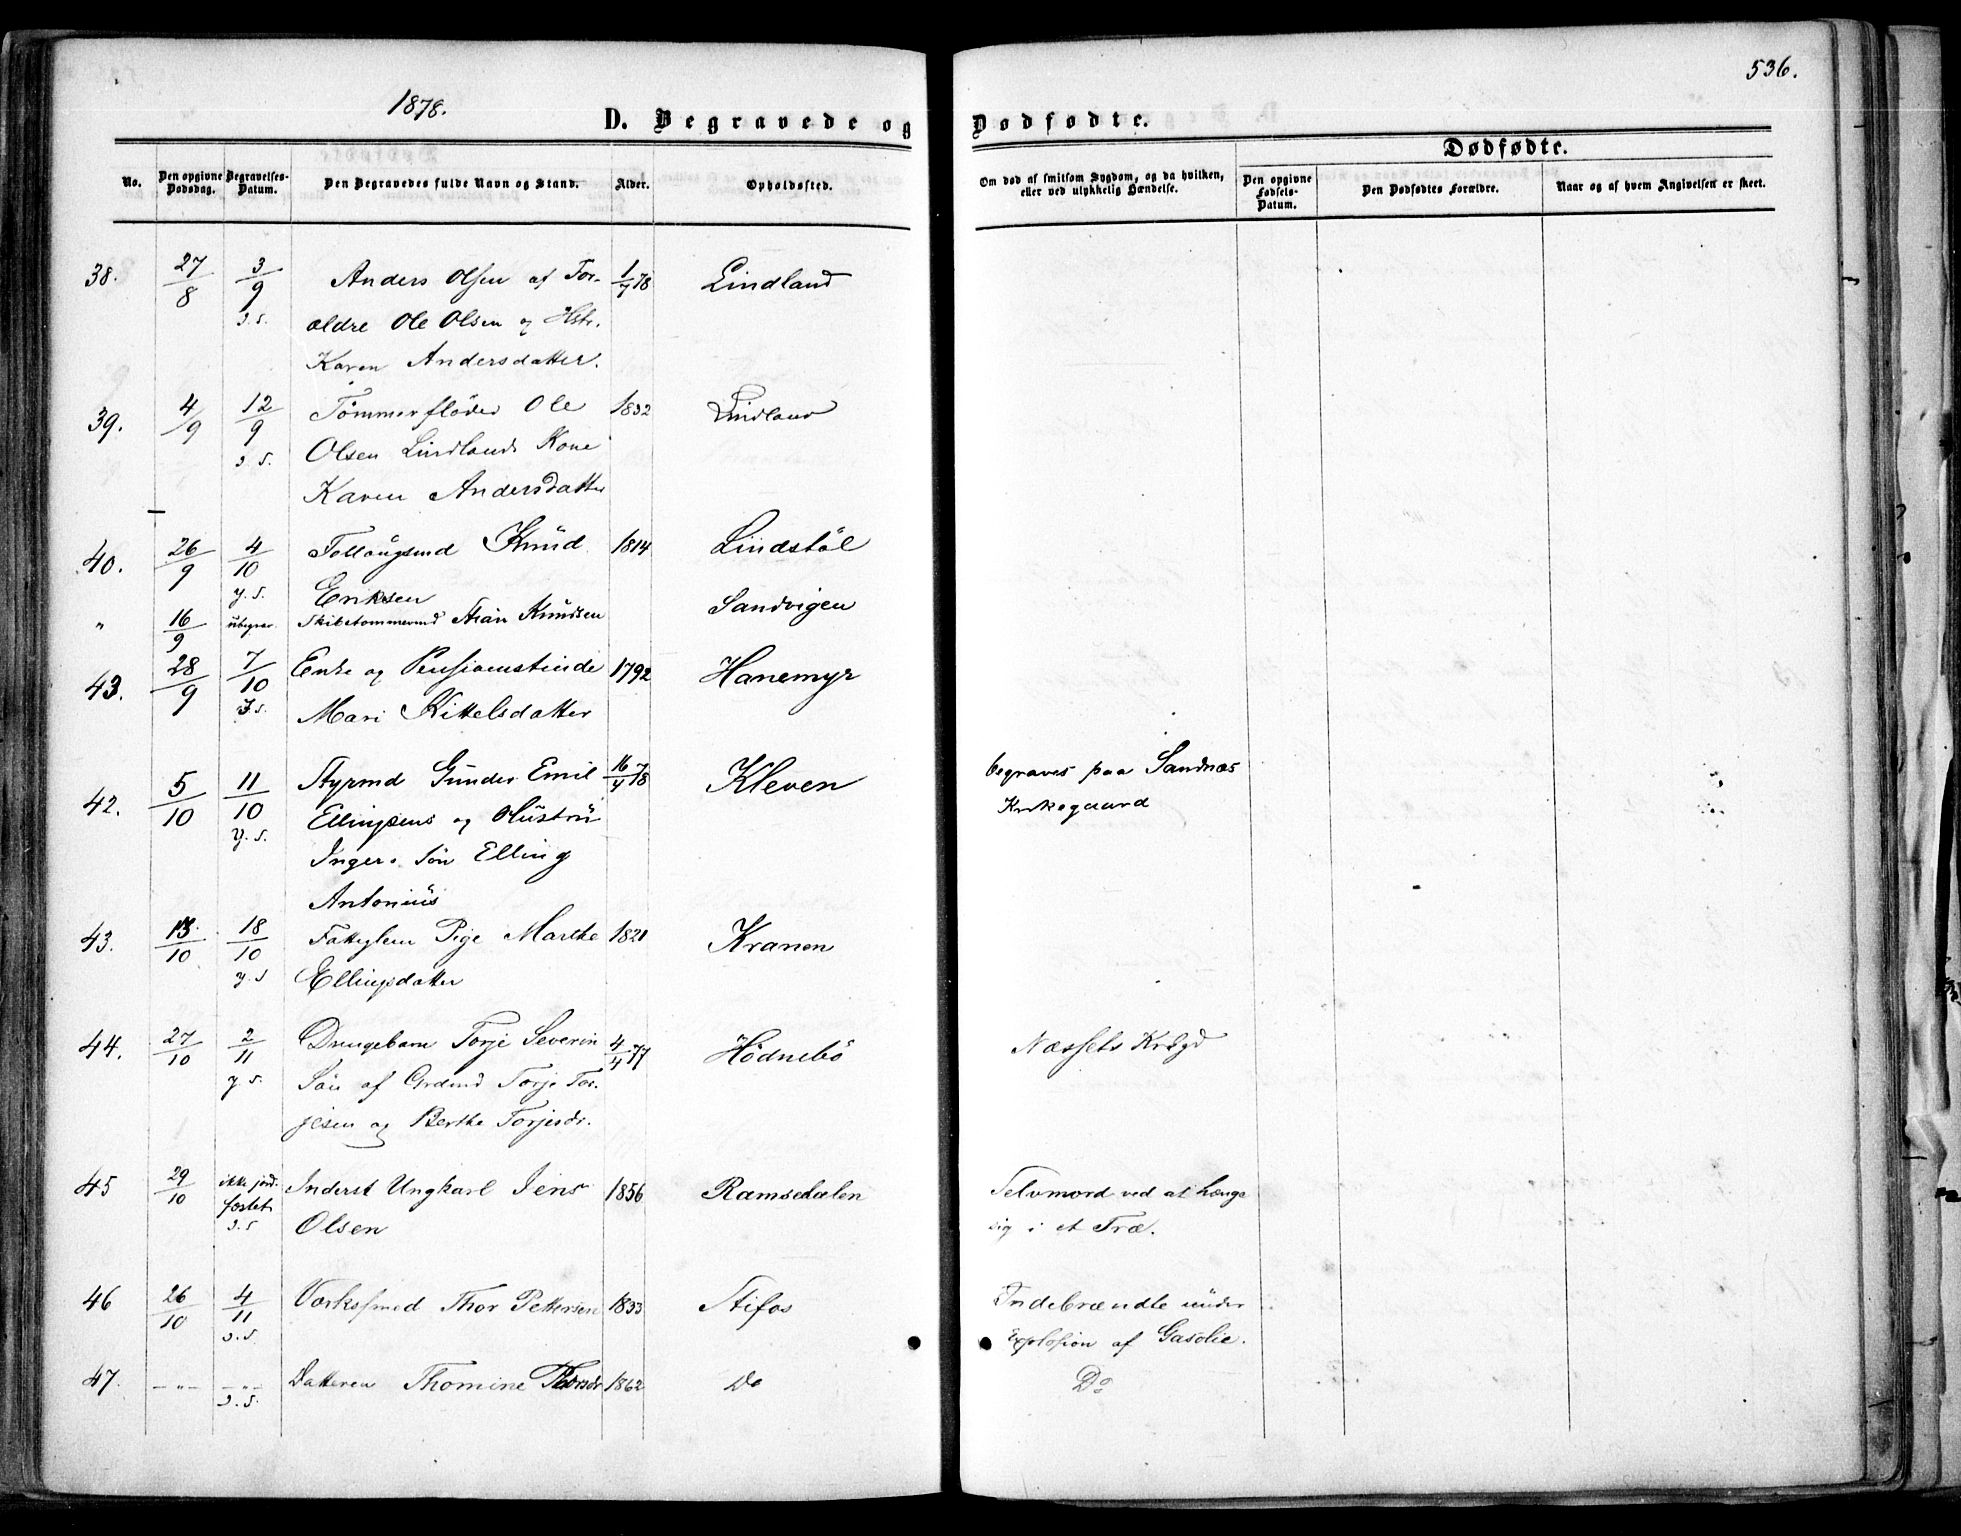 536.
1878.
D. Begravede og Dødfødte.
Dødfødte.
No.
Den opgivne Dødsdag.
Begravelses-Datum.
Den Begravedes fulde Navn og Stand.
Alder.
Opholdssted.
Om død af smitsom Sygdom, og da hvilken,
eller ved ulykkelig Hændelse.
Den opgivne Fødsels-Datum.
Den Dødfødtes Forældre.
Naar og af hvem Angivelsen er skeet.
38. 27/8 3/9 Anders Olsen af For- 1/7 78 Lindland
ældre Ole Olsen og Hstr.
Karen Andersdatter.
39. 4/9 12/9 Tömmerfløder Ole 1832 Lindland
Olsen Lindlands Kone
Karen Andersdatter
40. 26/9 4/10 Knud 1814 Lindstöl
y. S. Eriksen
" 16/9 ubegrav. Skibstømmermd Knudsen Sandvigen
43. 28/9 7/10 Enke og 1792 Hanemyr
Mari Kittelsdatter
42. 5/10 11/10 Styrmd Gunder Emil 16/4 78 Kleven begraves paa Sandnæs
y. S. Ellingsens og Hustru Kirkegaard
Inger. Sön Elling
Antonius
43. 13/10 18/10 Pige Marthe 1821 Kranen
y. S Ellingsdatter
44. 27/10 2/11 Drengebarn Torje Severin 4/4 77 Hödnebö Næssets Krkgd
y. S. Sön af Grdmd Torje Tor-
jesen og Berthe Torjesdr.
45 29/10 ikke jord- Inderst Ungkarl Jens 1856 Ramsdalen Selvmord ved at hænge
fæstet Olsen sig i et Træ.
46 26/10 4/11 Thor Pettersen 1833 Stifos Indebrændte under
Explosion af Gasolie.
47. -"- -"- Datteren Thomine Thorsdr 1862 Do Do